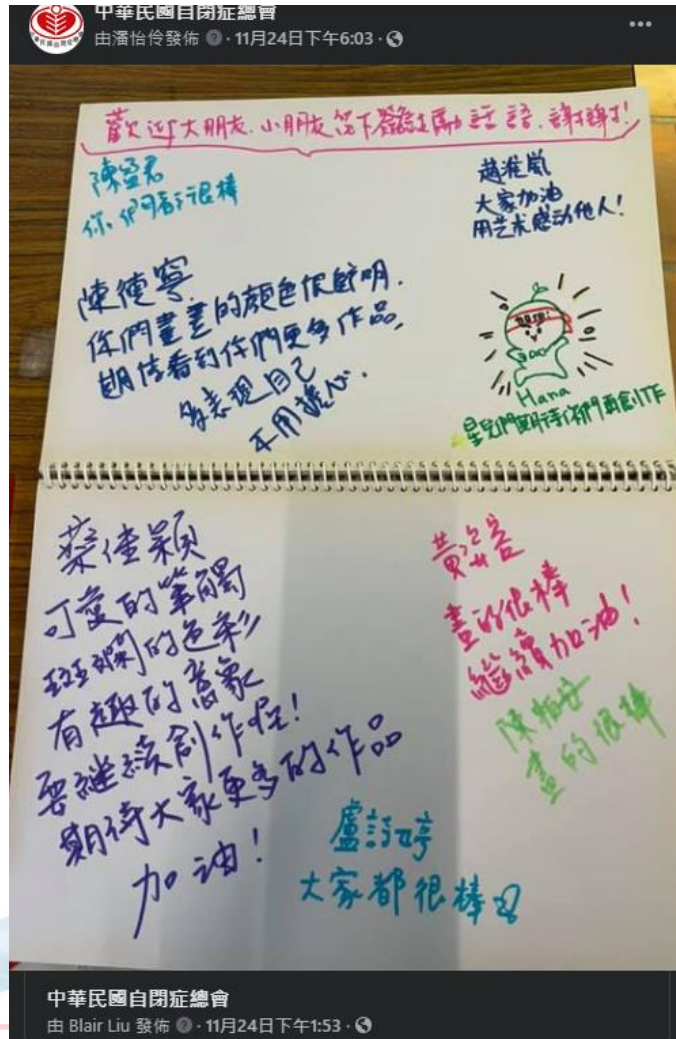 中華民國自閉症總會
由潘怡伶發佈 · 11月24日下午6:03 ·
歡迎大朋友、小朋友留下鼓勵話語、謝謝!
陳盈君
你、們都很棒
大家加油
用艺术感动他人!
陳德寧
你們畫畫的顏色很鮮明.
期待看到你們更多作品,
多表現自己
不用擔心.
Hana
星兒們期待你們再創作
蔡佳穎
可愛的筆觸
斑斕的色彩
有趣的意象
要繼續創作喔!
期待大家更多的作品
加油!
畫的很棒
繼續加油!
畫的很棒
大家都很棒
中華民國自閉症總會
由 Blair Liu 發佈 · 11月24日下午1:53 ·